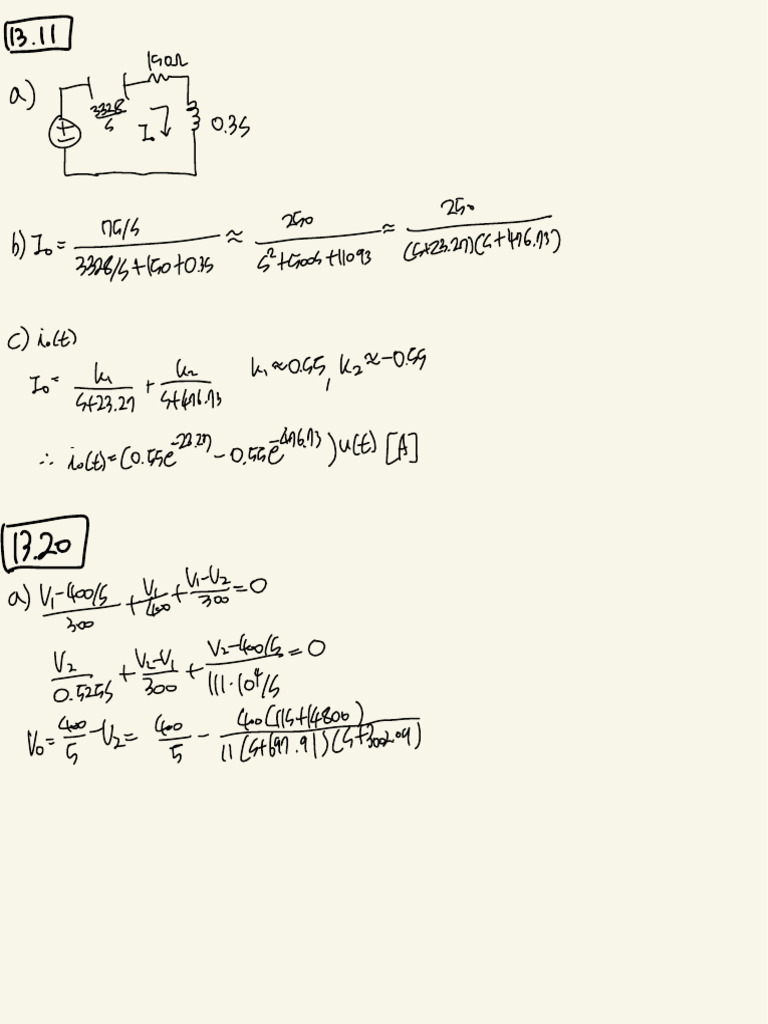 13.11
a)
150Ω
3328/s
I₀
0.3s
b) I₀ = (75/s)/(3328/s+150+0.3s) ≈ 250/(s²+500s+11093) ≈ 250/((s+23.27)(s+476.73))
c) i₀(t)
I₀ = k₁/(s+23.27) + k₂/(s+476.73) k₁≈0.55, k₂≈-0.55
∴ i₀(t)=(0.55e^-23.27 - 0.55e^-476.73)u(t) [A]
13.20
a) (V₁-400/s)/300 + V₁/400 + (V₁-V₂)/300 = 0
V₂/0.525s + (V₂-V₁)/300 + (V₂-400/s)/(111·10⁴/s) = 0
V₀ = 400/s - V₂ = 400/s - 400(11s+14800)/(11(s+697.91)(s+3002.09))